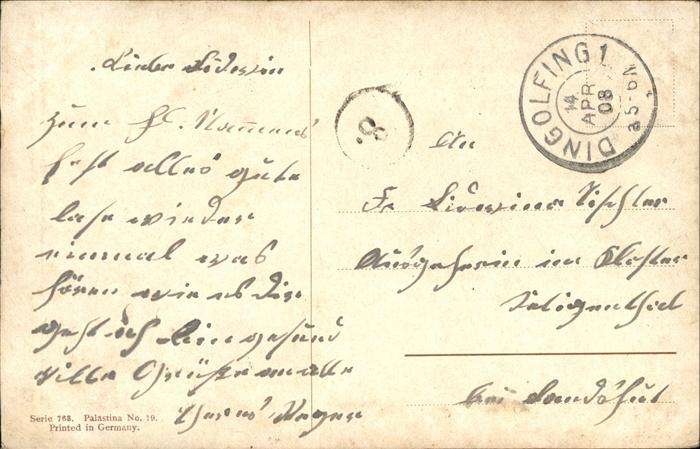 Liebe Lidwin
zum Hl. Namens
fest alles gute
lase wieder
einmal was
hören wie es dir
geht ich bin gesund
viele Grüße an alle
Theres Mayer
Serie 768. Palästina No. 19.
Printed in Germany.
8.
DINGOLFING 1.
14
APR
08
An
Fr Lidwina Tischler
Ausgeherin im Kloster
Seligenthal
bei Landshut